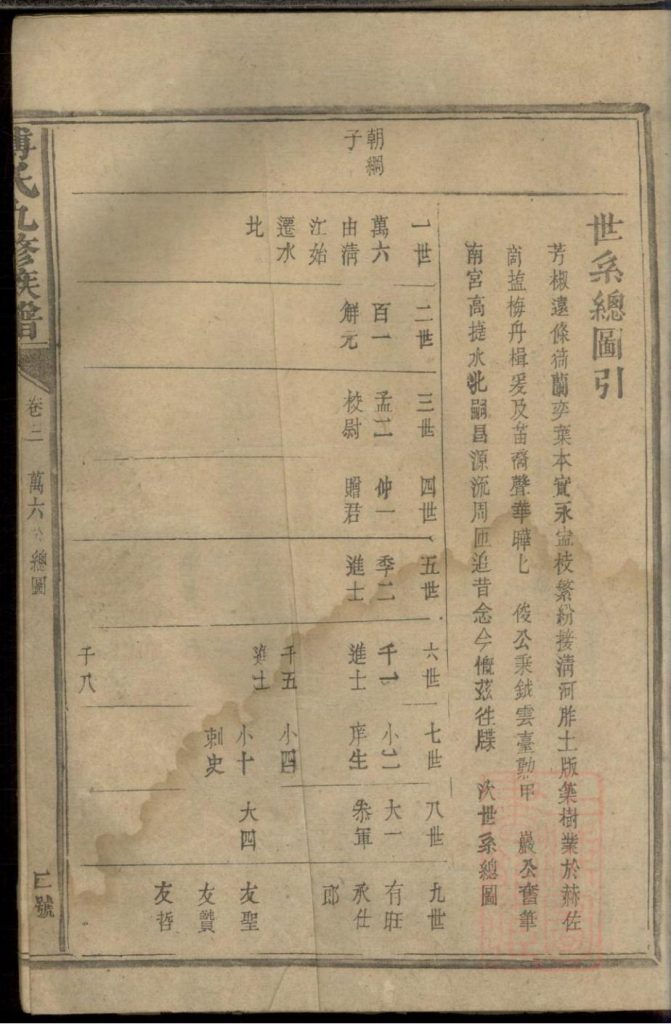 世系總圖引
芳椒遠條猗蘭奕葉本實永盛枝繁紛接清河胙土版築樹業於赫佐
商鹽梅舟楫爰及苗裔聲華曄匕 俊公秉鉞雲臺勳甲 嚴公奮筆
南宮高捷水北嗣昌源流周匝追昔念今慨茲往牒 次世系總圖
朝綱
子
一世
萬六
由清
江始
遷水
北
二世
百一
解元
三世
孟二
校尉
四世
仲一
贈君
五世
季二
進士
六世
千一
進士
千五
進士
千八
七世
小二
庠生
小四
小十
刺史
八世
大一
叅軍
大四
九世
有班
承仕
郎
友聖
友贊
友哲
傅氏九修族譜
卷二
萬六公總圖
號